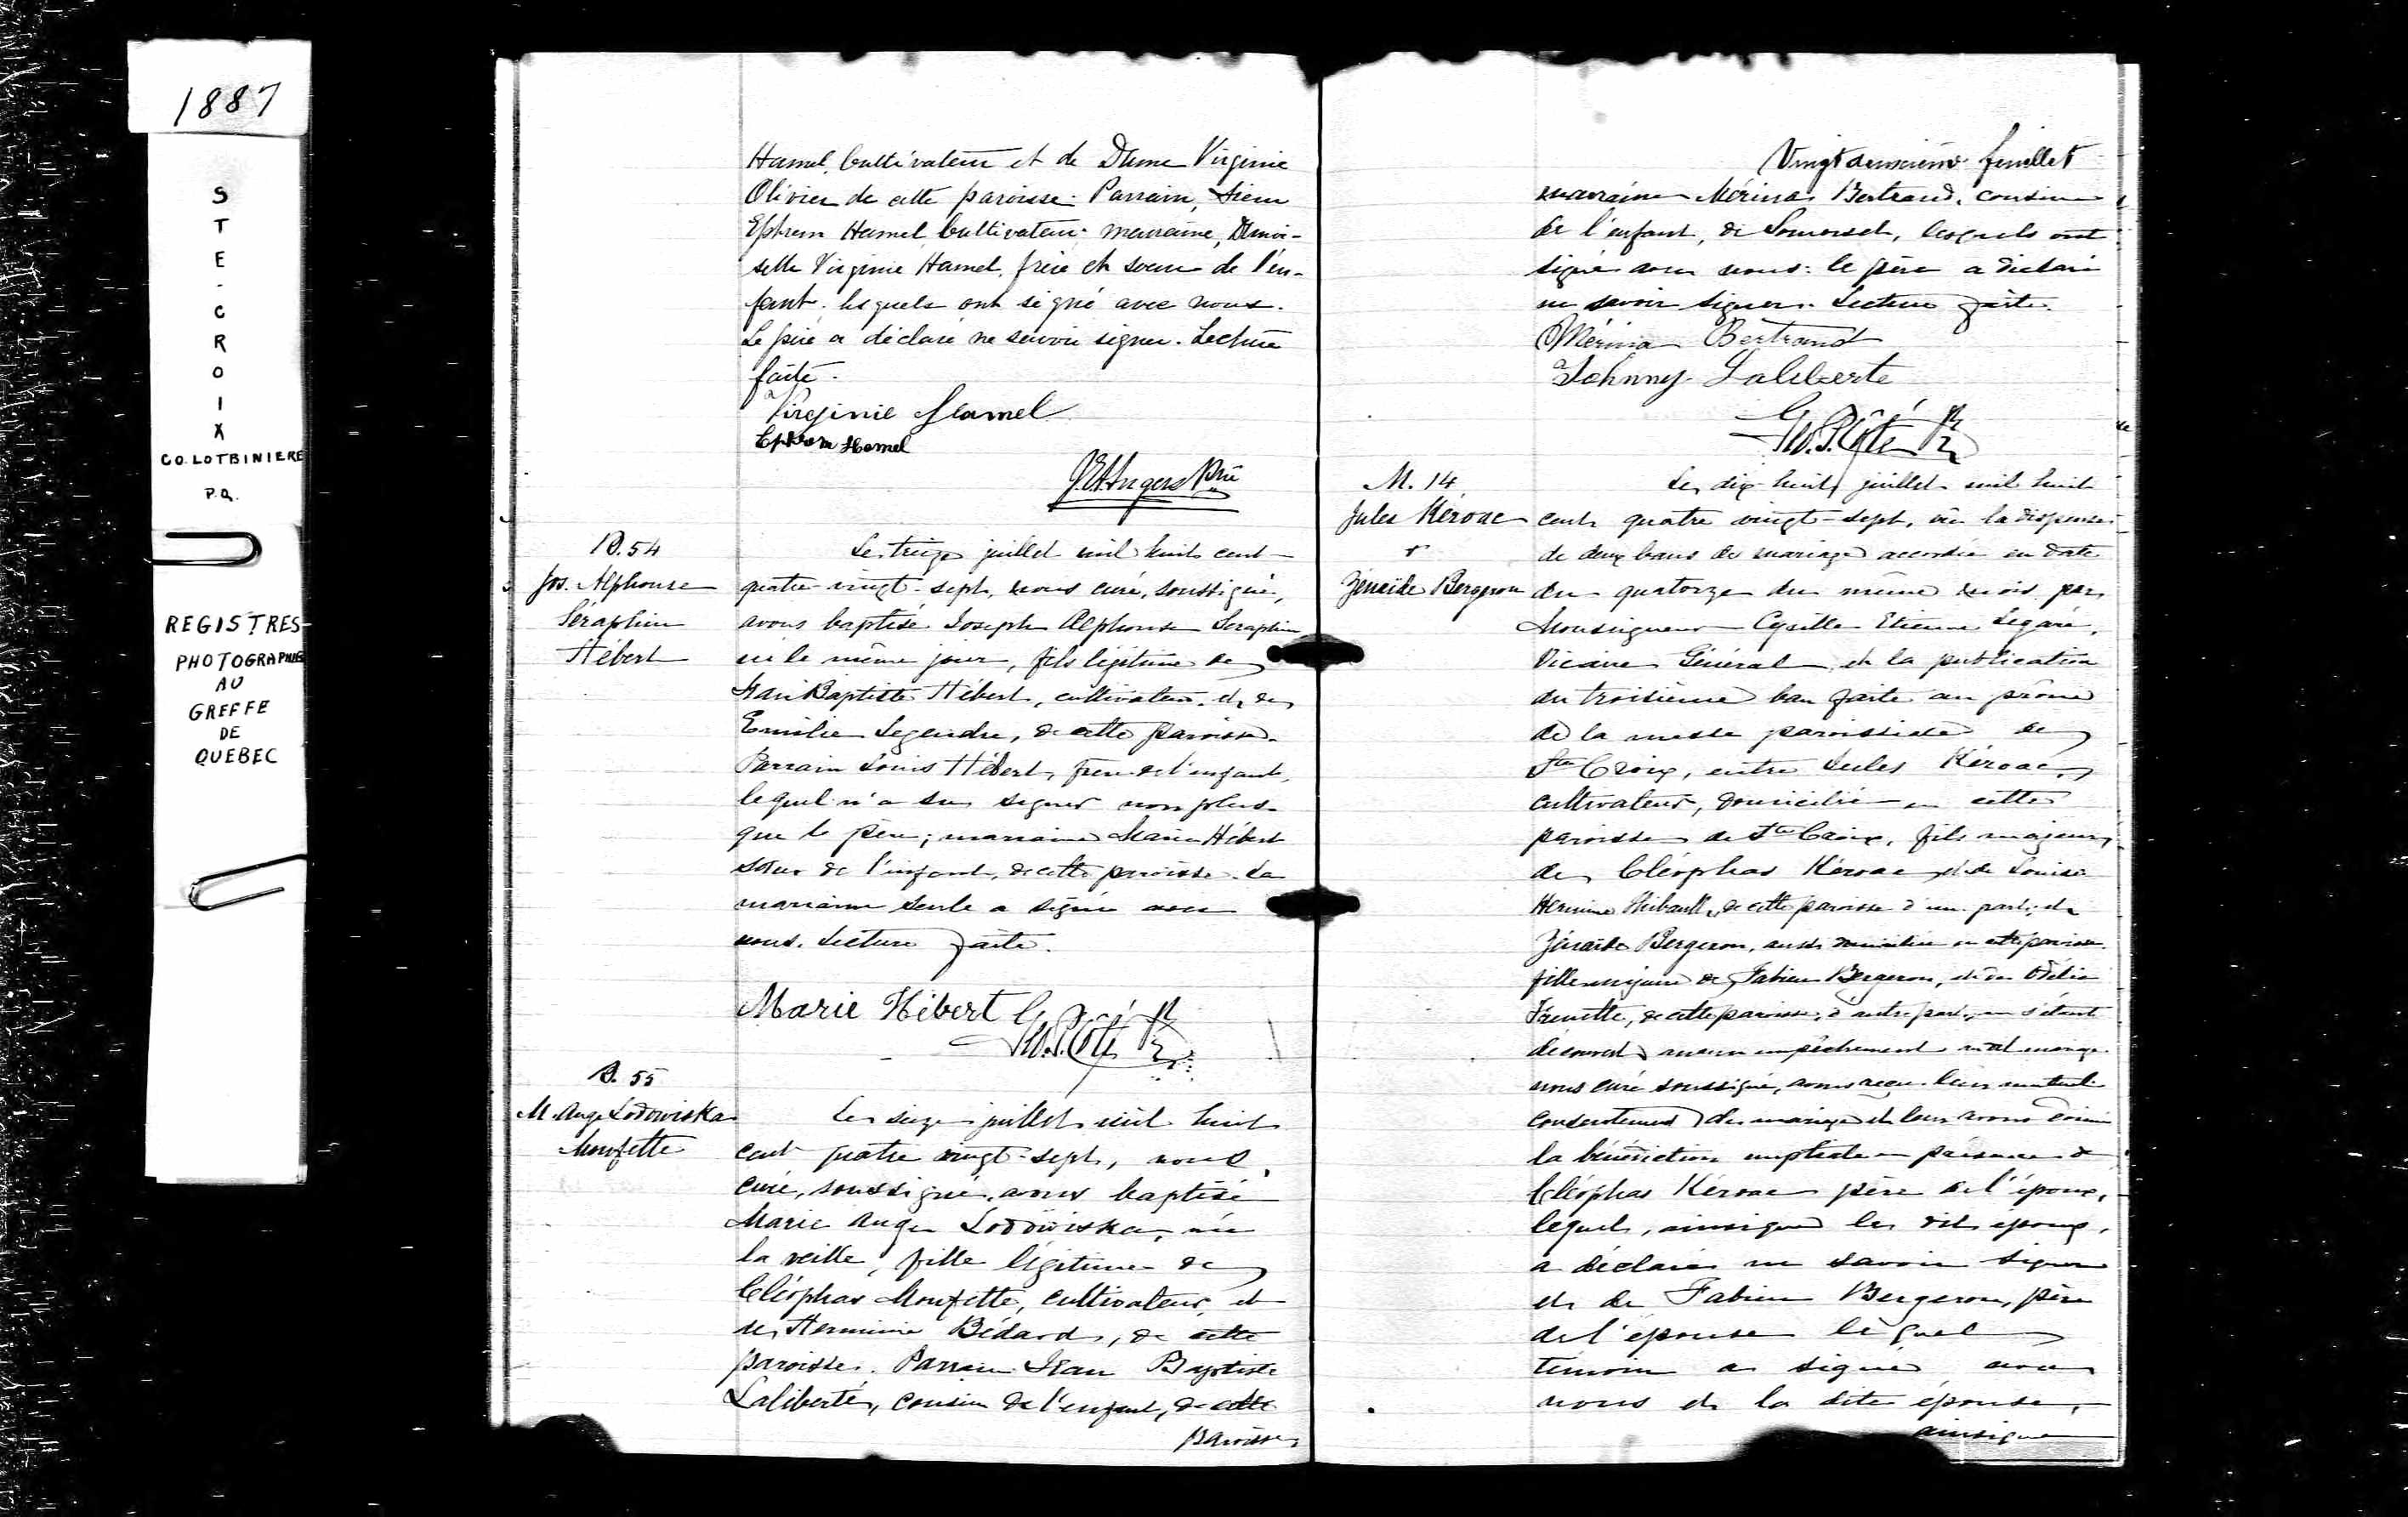 1887
STE-CROIX
CO. LOTBINIERE
P.Q.
REGISTRES
PHOTOGRAPHIÉS
AU
GREFFE
DE
QUEBEC
Hamel, Cultivateur et de Dame Virginie
Olivier de cette paroisse. Parrain, Sieur
Ephrem Hamel Cultivateur; marraine, Demoi-
selle Virginie Hamel, frère et soeur de l'en-
fant, lesquels ont signé avec nous.
Le père a déclaré ne savoir signer. Lecture
faite.
Virginie Hamel
Ephrem Hamel
Angers Ptre
B. 54
Jos. Alphonse
Séraphin
Hébert
Le treize juillet mil huit cent
quatre-vingt-sept, nous curé, soussigné,
avons baptisé Joseph Alphonse Seraphin
né le même jour, fils légitime de
Jean Baptiste Hébert, cultivateur, et de
Emilie Legendre, de cette paroisse.
Parrain Louis Hébert, frère de l'enfant,
lequel n'a su signer non plus
que le père; marraine Marie Hébert
soeur de l'enfant, de cette paroisse. La
marraine seule a signé avec
nous. Lecture faite.
Marie Hébert Geo. P. Côté Ptr
B. 55
M. Ange Lodowiska
Moufette
Le seize juillet mil huit
cent quatre vingt-sept, nous,
curé, soussigné, avons baptisé
Marie Ange Lodowiska, née
la veille, fille légitime de
Cléophas Moufette, cultivateur, et
de Herminie Bédard, de cette
paroisse. Parrain Jean Baptiste
Laliberté, cousin de l'enfant, de cette
paroisse,
Vingt deuxième feuillet
marraine Mérina Bertrand, cousine
de l'enfant, de Somerset, lesquels ont
signé avec nous: le père a déclaré
ne savoir signer. Lecture faite.
Mérina Bertrand
Johnny Laliberte
Geo. P. Côté Ptr
M. 14
Jules Kéroac
+
Zénaïde Bergeron
Le dix-huit juillet mil huit
cent quatre vingt-sept, vu la dispense
de deux bans de mariage accordée en date
du quatorze du même mois par
Monseigneur Cyrille Etienne Légaré,
Vicaire Général, et la publication
du troisième ban faite au prône
de la messe paroissiale de
Ste Croix, entre Jules Kéroac,
cultivateur, domicilié en cette
paroisse de Ste Croix, fils majeur
de Cléophas Kéroac et de Louise
Hermine Thibault, de cette paroisse d'une part; et
Zénaïde Bergeron, aussi domiciliée en cette paroisse
fille majeure de Fabien Bergeron, et de Odélie
Frenette, de cette paroisse, d'autre part, ne s'étant
découvert aucun empêchement au dit mariage
nous curé soussigné, avons reçu leur mutuel
consentement de mariage et leur avons donné
la bénédiction nuptiale en présence de
Cléophas Kéroac père de l'époux,
lequel, ainsi que les dits époux,
a déclaré ne savoir signer
et de Fabien Bergeron, père
de l'épouse lequel
témoin a signé avec
nous et la dite épouse,
ainsi que